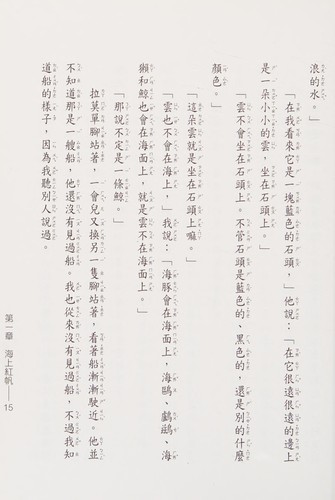 浪的水。」
「在我看來它是一塊藍色的石頭，」他說：「在它很遠很遠的邊上
是一朵小小的雲，坐在石頭上。」
「雲不會坐在石頭上。不管石頭是藍色的、黑色的，還是別的什麼
顏色。」
「這朵雲就是坐在石頭上嘛。」
「雲也不會在海上，」我說：「海豚會在海面上，海鷗、鸕鶿、海
獺和鯨也會在海面上，就是雲不在海面上。」
「那說不定是一條鯨。」
拉莫單腳站著，一會兒又換另一隻腳站著，看著船漸漸駛近。他並
不知道那是一艘船，他還沒有見過船。我也從來沒有見過船，不過我知
道船的樣子，因為我聽別人說過。
第一章 海上紅帆──15